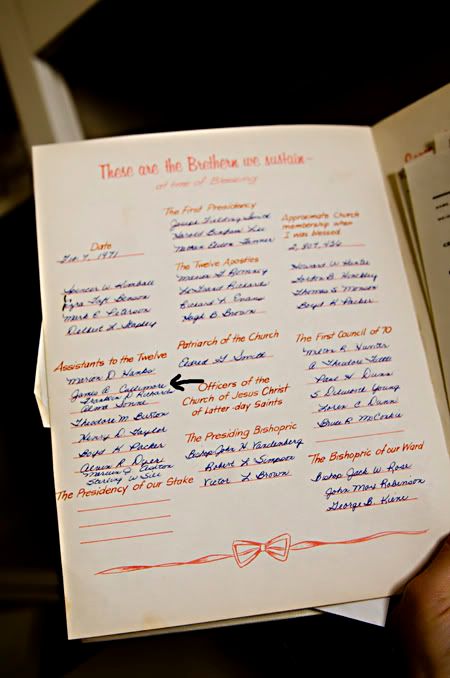 These are the Brethern we sustain—
at time of Blessing
Date
Feb. 7, 1971
The First Presidency
Joseph Fielding Smith
Harold Bingham Lee
Nathan Eldon Tanner
Approximate Church
membership when
I was blessed
The Twelve Apostles
Spencer W. Kimball
Ezra Taft Benson
Mark E. Peterson
Delbert L. Stapley
Marion G. Romney
Le Grand Richards
Richard L. Evans
Hugh B. Brown
Howard W. Hunter
Gordon B. Hinckley
Thomas S. Monson
Boyd K. Packer
Assistants to the Twelve
Marion D. Hanks
James A. Cullimore
Franklin D. Richards
Alma Sonne
Theodore M. Burton
Henry D. Taylor
Boyd K. Packer
Alvin R. Dyer
Marvin J. Ashton
Sterling W. Sill
Patriarch of the Church
Eldred G. Smith
Officers of the
Church of Jesus Christ
of Latter-day Saints
The Presiding Bishopric
Bishop John H. Vandenberg
Robert L. Simpson
Victor L. Brown
The First Council of 70
Milton R. Hunter
A Theodore Tuttle
Paul H. Dunn
S. Delworth Young
Loren C. Dunn
Bruce R. McConkie
The Bishopric of our Ward
Bishop Jack W. Rose
John Max Robinson
George B. Kune
The Presidency of our Stake